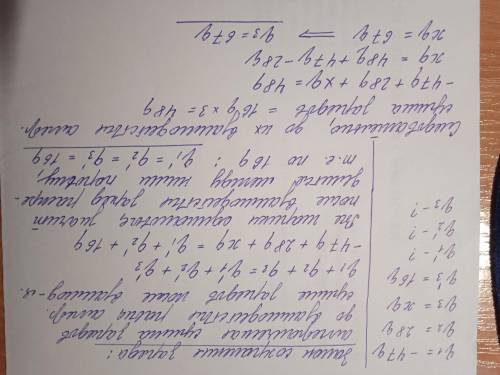 q₁ = -47q
q₂ = 28q
q₃ = xq
q₃' = 16q
q₁' - ?
q₂' - ?
q₃ - ?
Закон сохранения заряда:
алгебраическая сумма зарядов
до взаимодействия равна алгебр.
сумме зарядов после взаимод-я.
q₁ + q₂ + q₃ = q₁' + q₂' + q₃'
-47q + 28q + xq = q₁' + q₂' + 16q
Все шарики одинаковые, значит
после взаимодействия заряд распре-
делится между ними поровну,
т.е. по 16q : q₁' = q₂' = q₃' = 16q
Следовательно, до их взаимодействия алгебр.
сумма зарядов = 16q × 3 = 48q
-47q + 28q + xq = 48q
xq = 48q + 47q - 28q
xq = 67q ⇒ q₃ = 67q